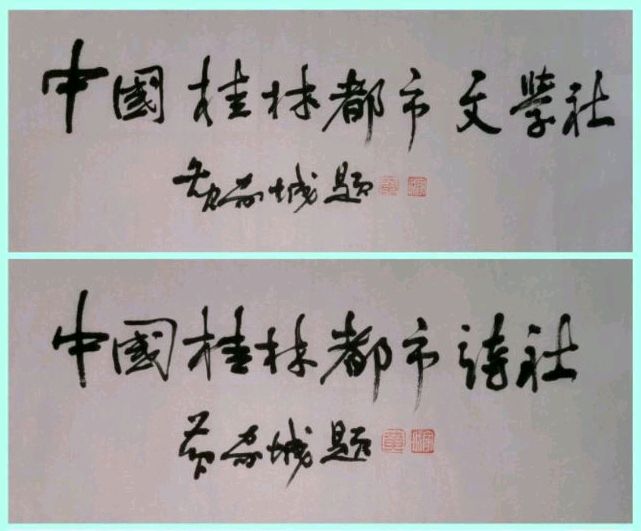 中國桂林都市文學社
城題
中國桂林都市詩社
城題